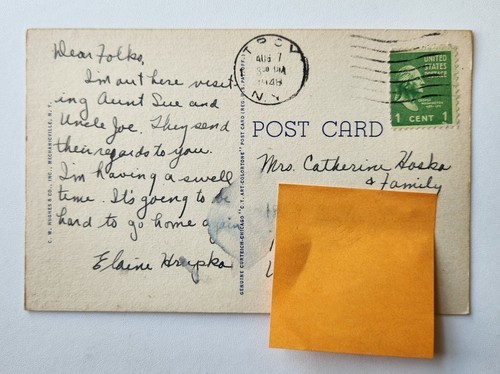 Dear Folks,
I'm out here visit-
ing Aunt Sue and
Uncle Joe. They send
their regards to you.
I'm having a swell
time. It's going to be
hard to go home again
Elaine Hrupka
C. W. HUGHES & CO., INC., MECHANICVILLE, N. Y.
GENUINE CURTEICH-CHICAGO "C.T. ART-COLORTONE" POST CARD (REG. U.S. PAT. OFF.)
TROY
AUG 7
PM
1948
N.Y.
UNITED
STATES
POSTAGE
1 CENT 1
POST CARD
Mrs. Catherine Hoska
& Family